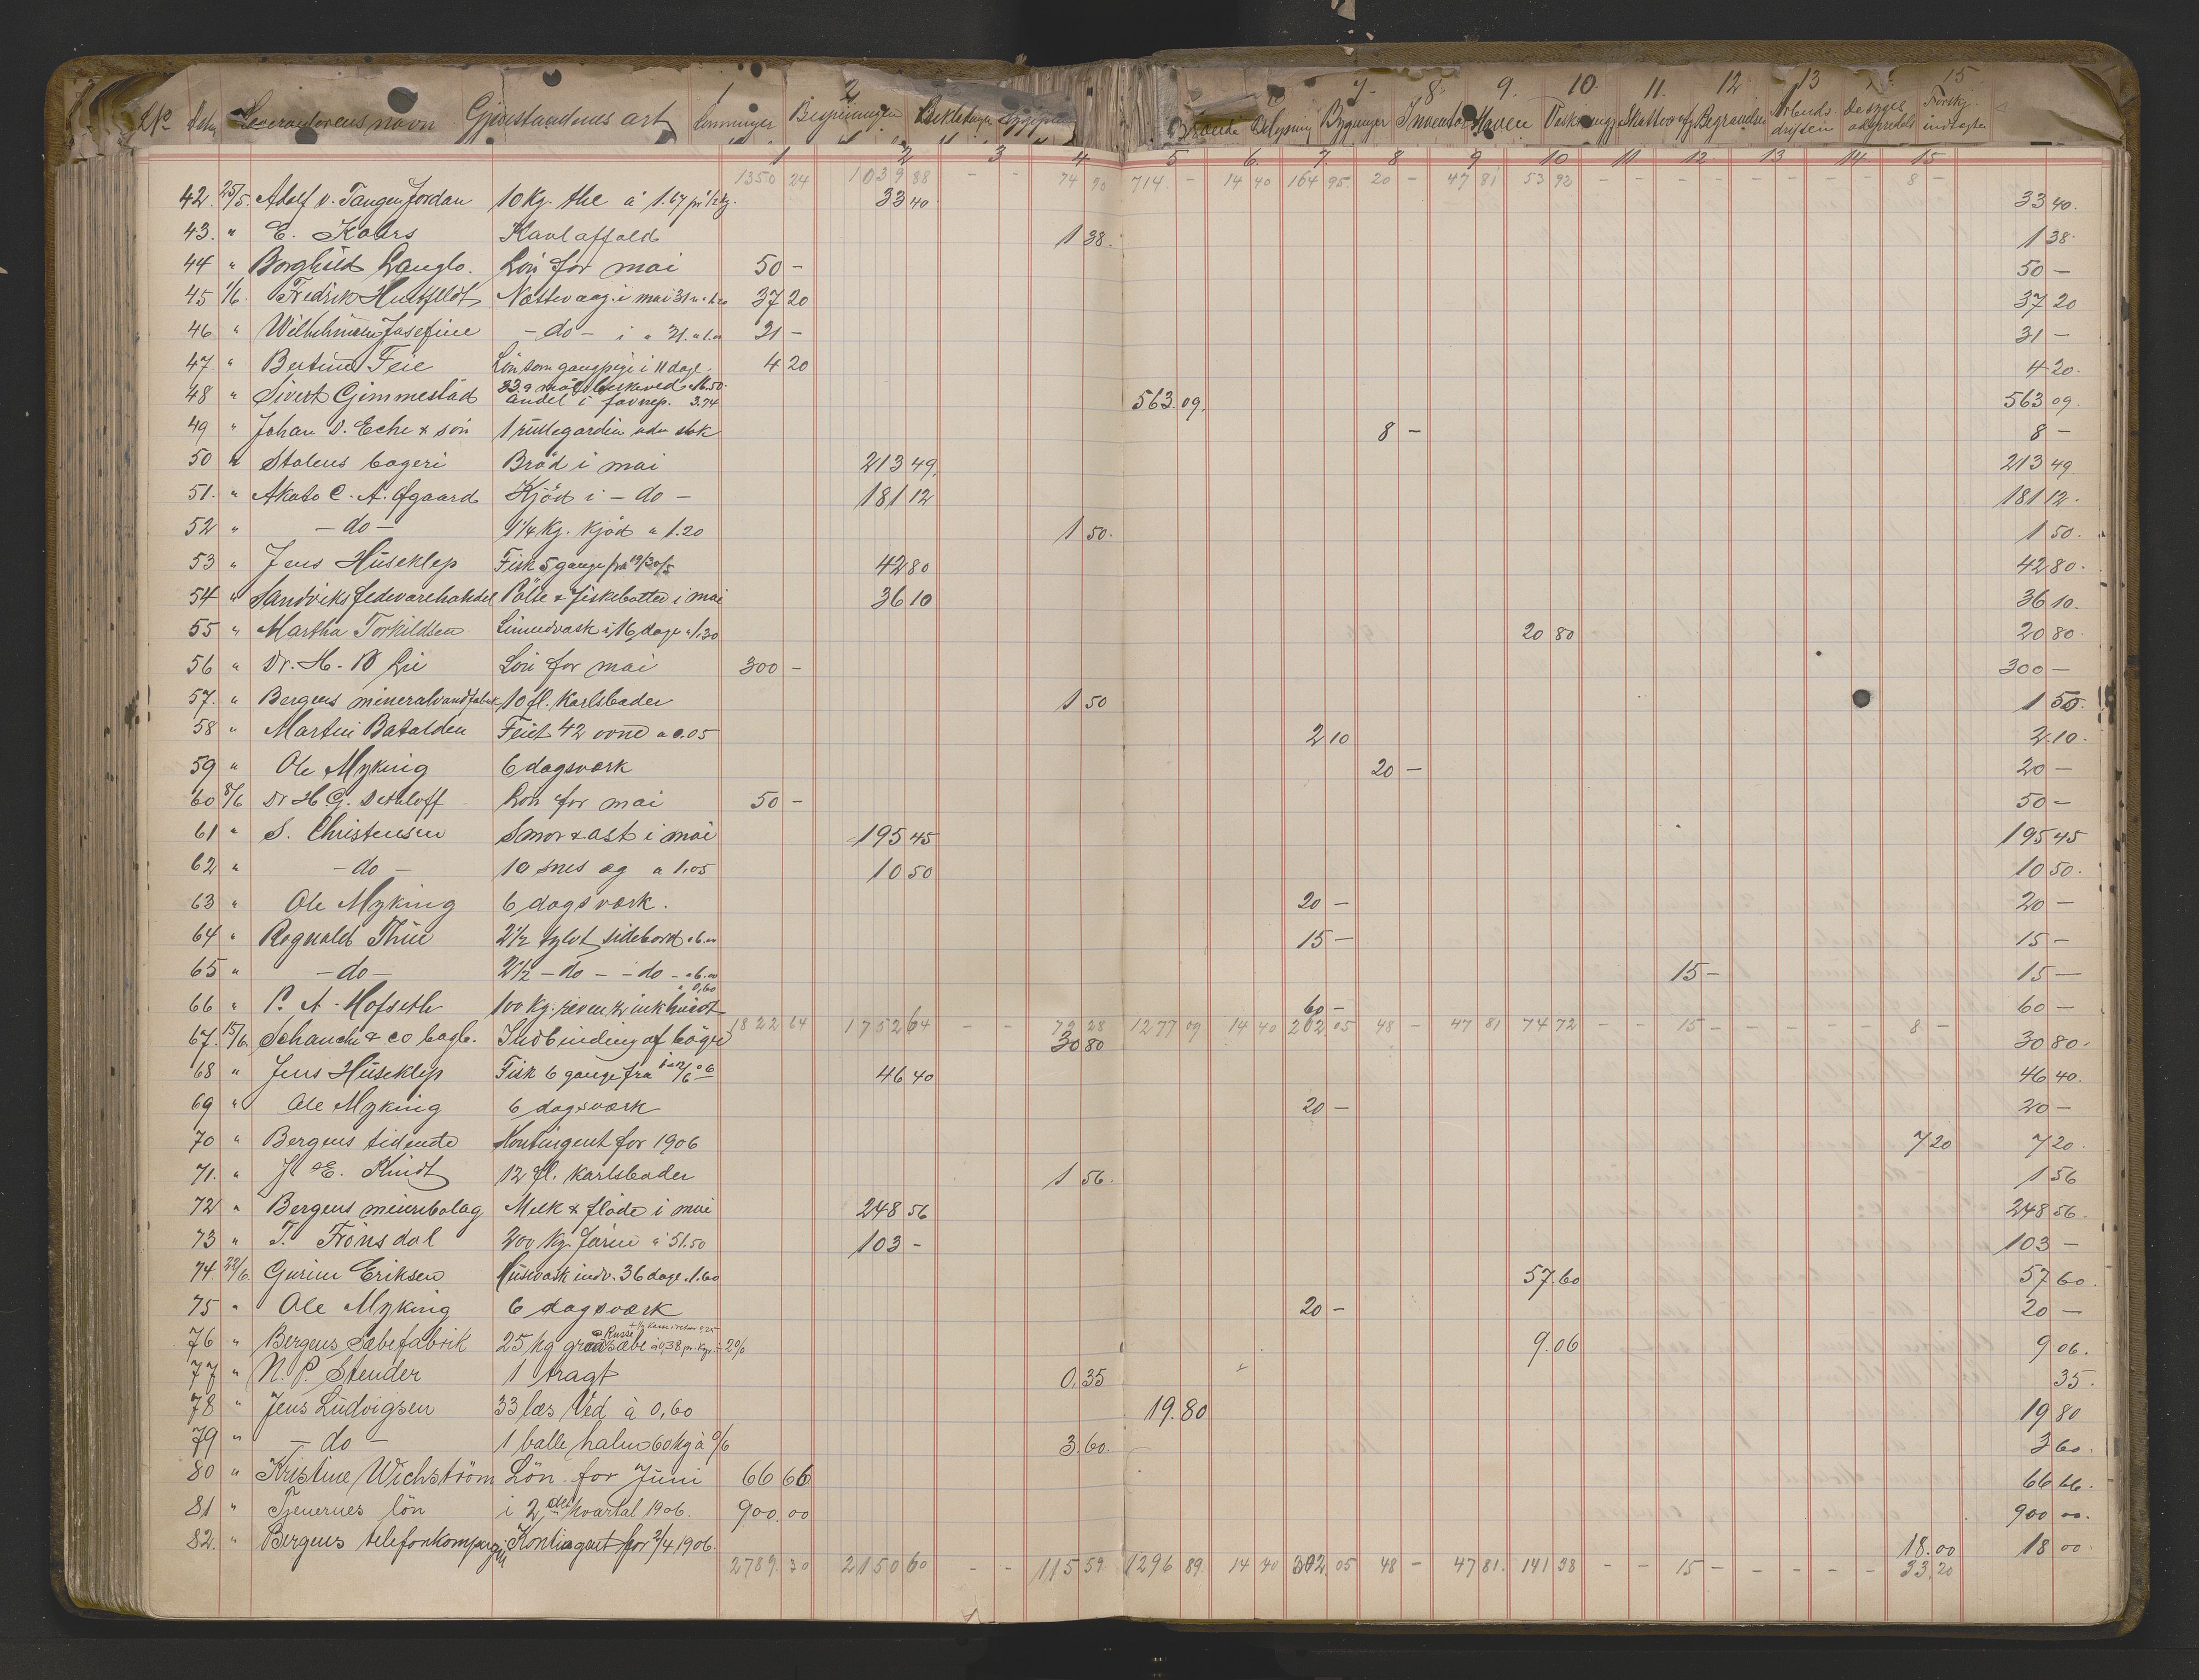 No Dato Leverandörens navn Gjenstandens art Lönninger Bespisningen Beklædningen Sygeplejen Brænde Belysning Bygninger Inventar Haven Vask Skatter Begravelser Arbeids driften Forskj. indtægter
1 2 7. 8. 9. 10. 11. 12 13 15
1 2 3 4 5 6. 7 8 9 10 11 12 13 14 15
1350 24 1039 88 - - 74 90 714. - 14 40 164 95. 20 - 47 81 53 92 - - - - - - - - 8 -
42. 25/5. Adolf v. Tangen Jordan 10 Kg. the à 1.67 pr 1/2 kg. 33 40. 33 40.
43. " E. Kahrs Kaalaffald 1 38. 1 38.
44 " Borghild Langlo. Lön for mai 50 - 50 -
45 1/6. Fredrik Huitfeldt Nattevaag. i mai 31 n. à 1.20 37 20 37 20
46 " Wilhelmine Josefine - do - i " 31. à 1.00 31 - 31 -
47. " Bertine Feie Lön som gangpige i 11 dage. 4 20 4 20.
48 " Sivert Gimmestad 33.9 mål birkeved à 16.50. andel i favnep. 3.74 563.09. 563 09.
49 " Johan D. Eche & sön 1 rullegardin uden stok 8 - 8 -
50 " Stolens bageri Bröd i mai 213 49. 213 49
51. " Akats C. A. Øgaard Kjöd i - do - 181 12 181 12.
52 " - do - 1 1/4 Kg. Kjöd à 1.20 1 50. 1 50.
53 " Jens Huseklep Fisk 5 gange fra 19/30/5 42 80 42 80.
54 " Sandviks fedevarehandel Pölse & fiskeboller i mai 36 10 36 10.
55 " Martha Torkildsen Linnedvask i 16 dage à 1.30 20 80 20 80.
56 " Dr. H. P. Lie Lön for mai 300 - 300 -
57. " Bergens mineralvandfabrik 10 fl. Karlsbader 1 50 1 50.
58 " Martin Batalden Feiet 42 ovne à 0.05 2 10 2.10.
59 " Ole Myking 6 dagsværk 20 - 20 -
60 8/6 Dr H. G. Dethloff Lön for mai 50 - 50 -
61 " S. Christensen Smör & ost i mai 195 45 195 45
62 " - do - 10 snes æg à 1.05 10 50 10 50.
63 " Ole Myking 6 dagsværk. 20 - 20 -
64 " Ragnvald Thue 2 1/2 tylvt sidebord à 6.00 15 - 15 -
65 " - do - 2 1/2 - do - - do - à 6.00 15 - 15 -
66 " P. A. Hofseth 100 Kg. reven zinkhvidt à 0,60 60 - 60 -
1822 64 1752 64 - - 79 28 1277 09 14 40 262.05 48 - 47 81 74 72 - - 15 - - - - - 8 -
67. 15/6. Schanche & co bogb. Indbinding af böger 30 80 30 80.
68 " Jens Huseklep Fisk 6 gange fra 46 40 46 40.
69 " Ole Myking 6 dagsværk 20 - 20 -
70 " Bergens tidende Kontingent for 1906 7 20 7 20.
71. " J. E. Kindt 12 fl. karlsbader 1 56. 1 56
72 " Bergens meieribolag Melk & flöde i mai 248 56 248 56.
73 " T. Frönsdal 200 Kg. farin à 51.50 103 - 103 -
74. 22/6. Gurine Eriksen Husvask indv. 36 dage à 1.60 57.60 57 60.
75 " Ole Myking 6 dagsværk 20 - 20 -
76 " Bergens Sæbefabrik 25 kg grönsæbe à 0,38 pr. kgr. 2% 9.06 9 06.
77 " N. P. Stender 1 tragt 0.35 35.
78 " Jens Ludvigsen 33 læs Ved à 0,60 19.80 19 80
79 " - do - 1 balle halm 60 kg à 0/6 3.60. 3 60.
80 " Kristine Wichström Lön for Juni 66 66 66 66.
81 " Tjenernes lön i 2det kvartal 1906. 900.00 900 00.
82. " Bergens telefonkompagni Kontingent for 2/4 1906. 18.00 18 00
2789.30 2150 60 - - 115 59 1296 89. 14 40 302.05 48 - 47 81. 141 38 - - 15 - - - - - 33 20